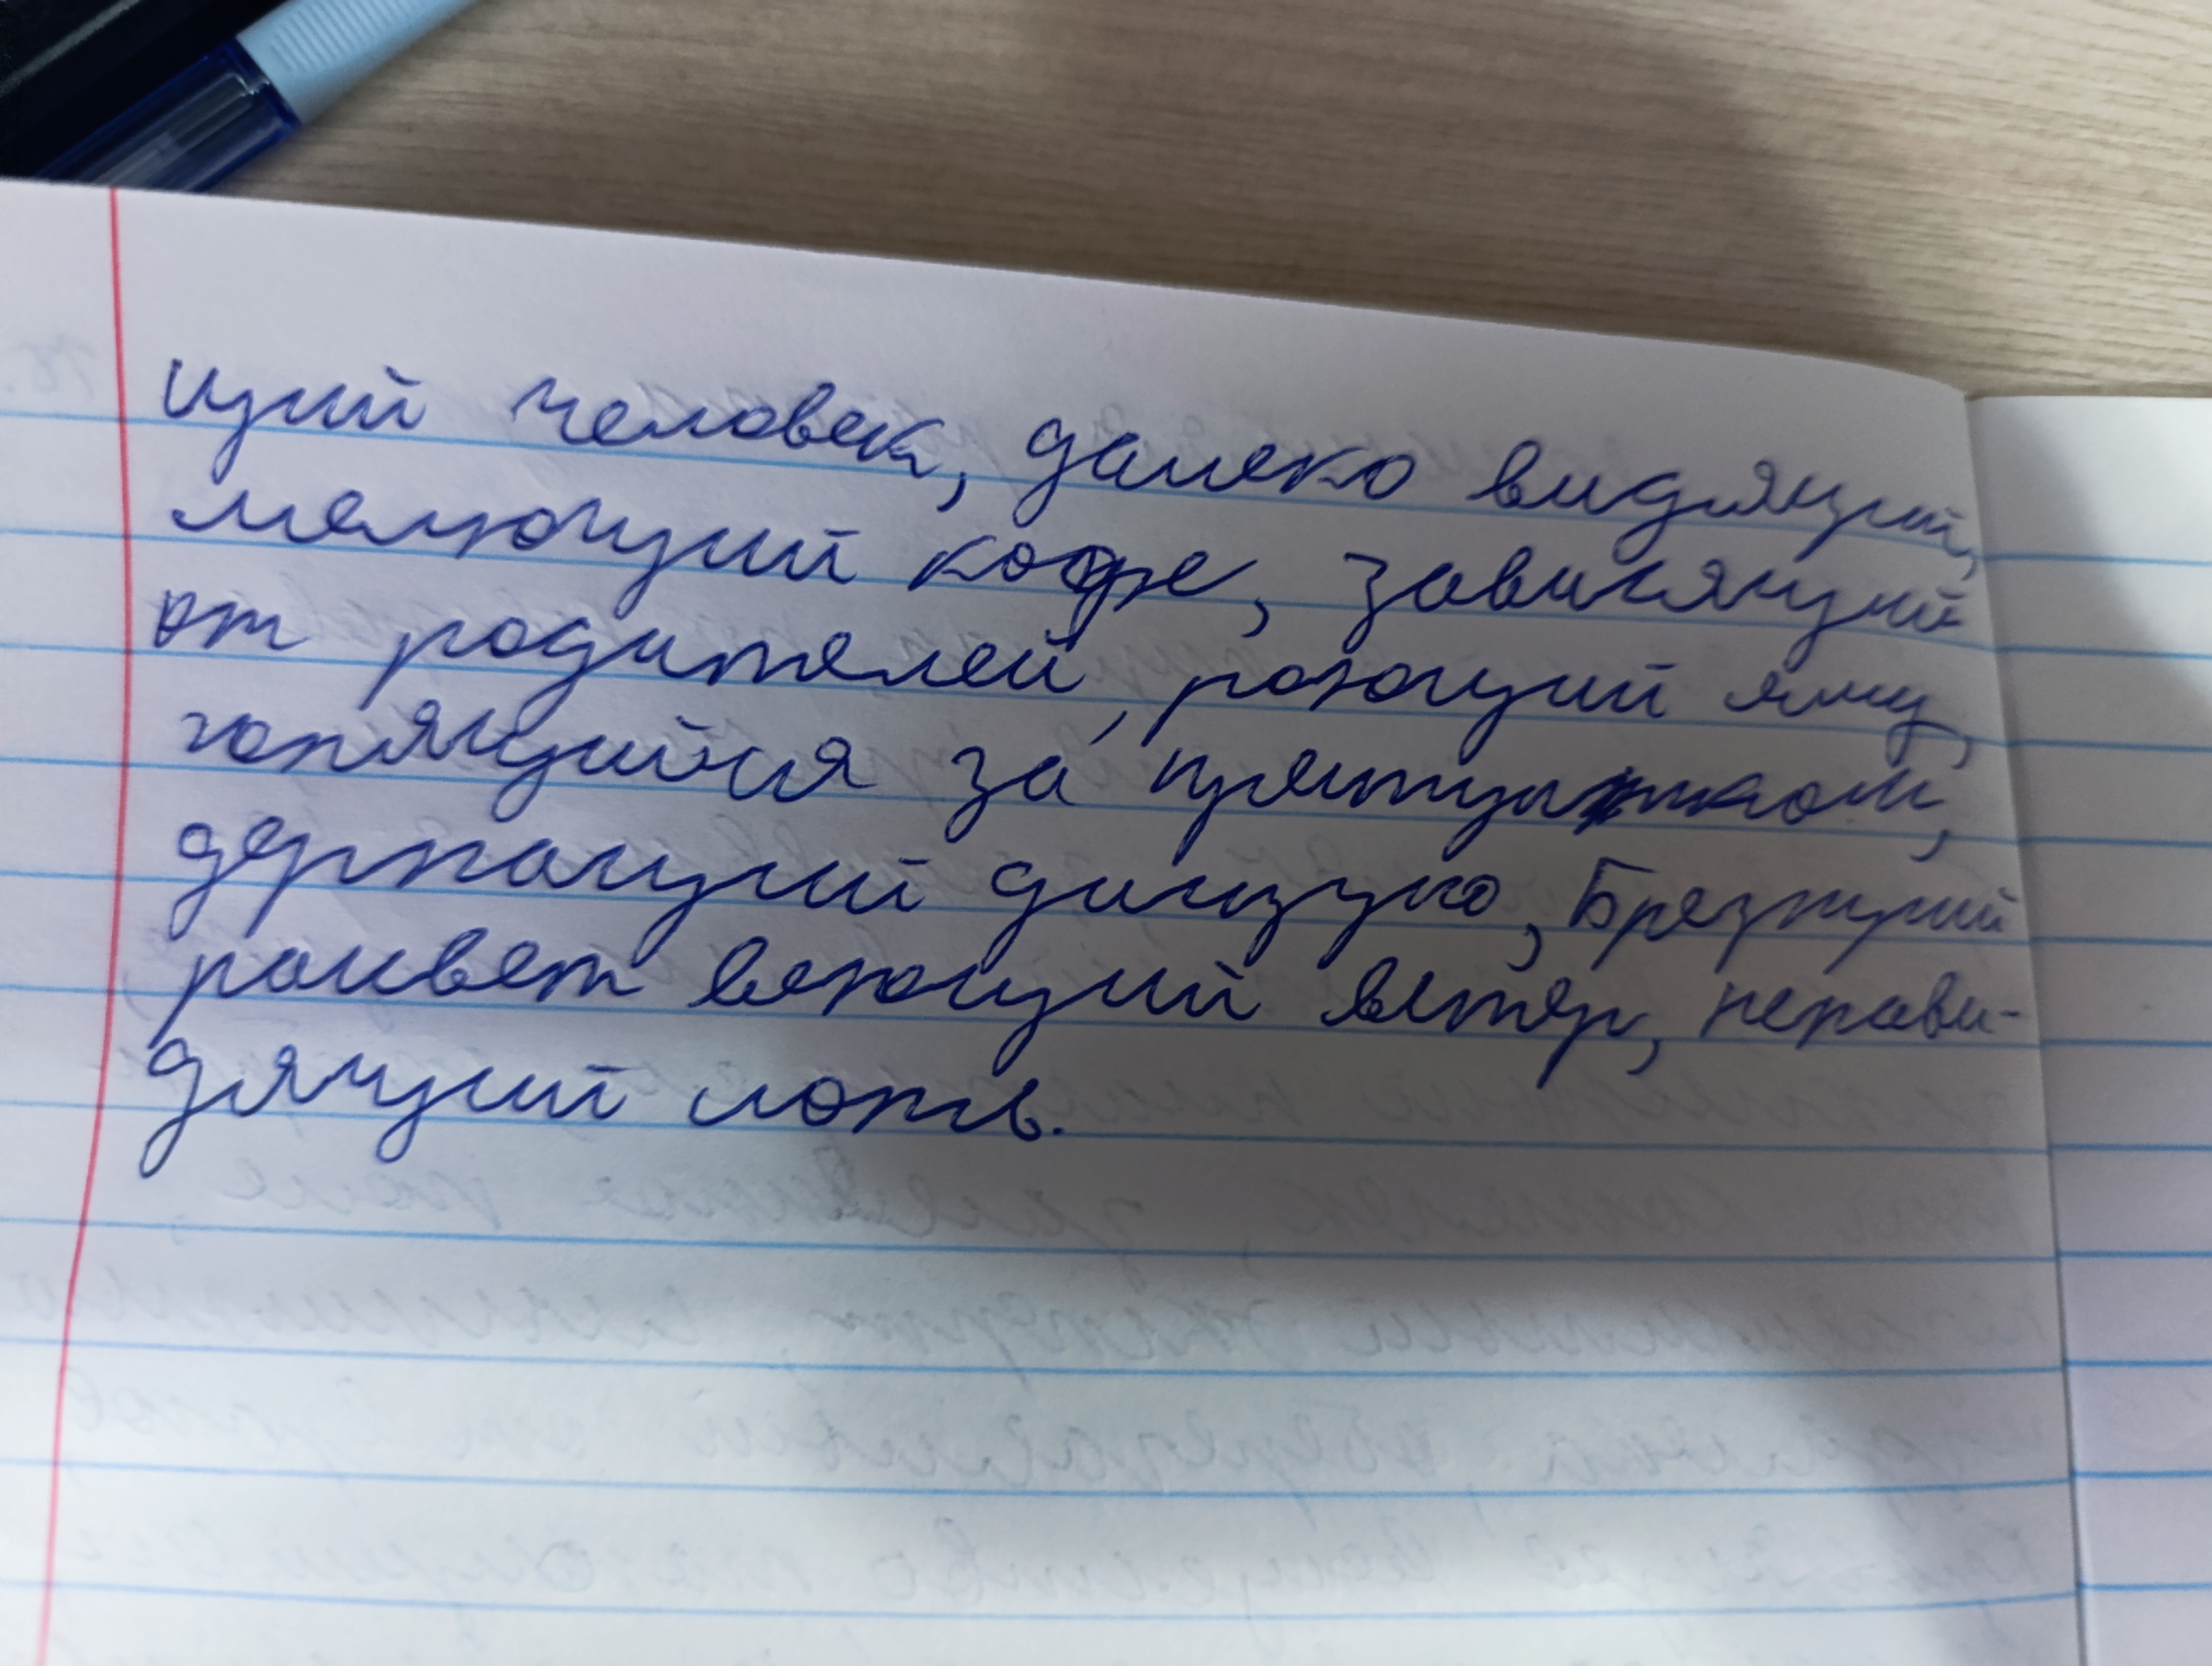 щий человек, далеко видящий,
мелющий кофе, зависящий
от родителей, роющий яму,
гонящийся за преступником,
держащий дистанцию, Брезжущий
рассвет веющий ветер, ненави-
дящий ложь.